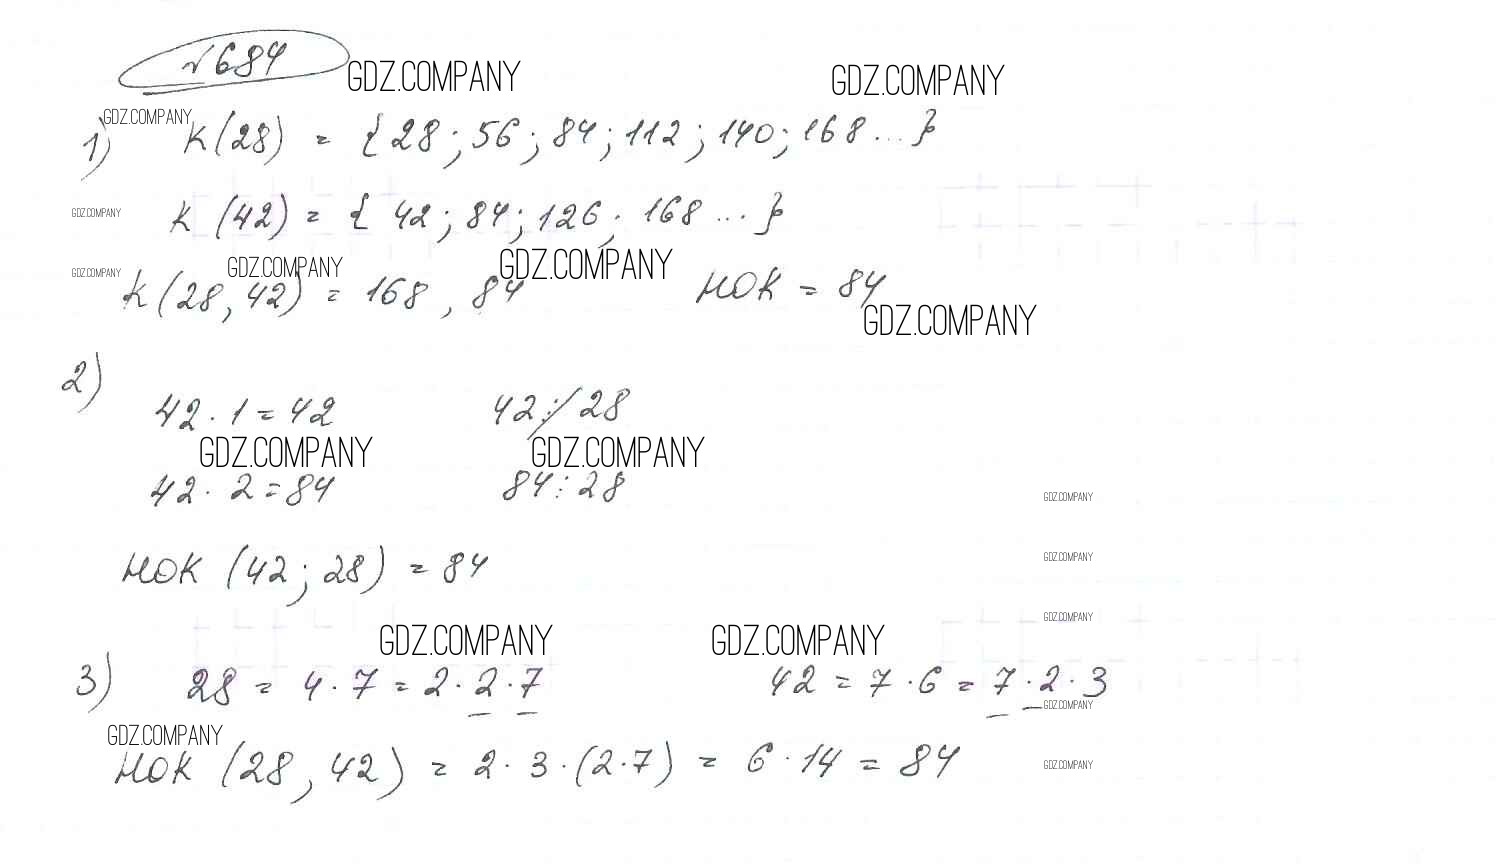 №684
GDZ.COMPANY GDZ.COMPANY
GDZ.COMPANY
1) К(28) = {28; 56; 84; 112; 140; 168 ... }
GDZ.COMPANY
К (42) = { 42; 84; 126; 168 ... }
GDZ.COMPANY GDZ.COMPANY GDZ.COMPANY
К (28, 42) = 168, 84 НОК = 84
GDZ.COMPANY
2)
42 · 1 = 42 42 :/ 28
GDZ.COMPANY GDZ.COMPANY
42 · 2 = 84 84 : 28
GDZ.COMPANY
НОК (42; 28) = 84
GDZ.COMPANY
GDZ.COMPANY
GDZ.COMPANY GDZ.COMPANY
3) 28 = 4 · 7 = 2 · 2 · 7 42 = 7 · 6 = 7 · 2 · 3
GDZ.COMPANY
GDZ.COMPANY
НОК (28, 42) = 2 · 3 · (2 · 7) = 6 · 14 = 84
GDZ.COMPANY